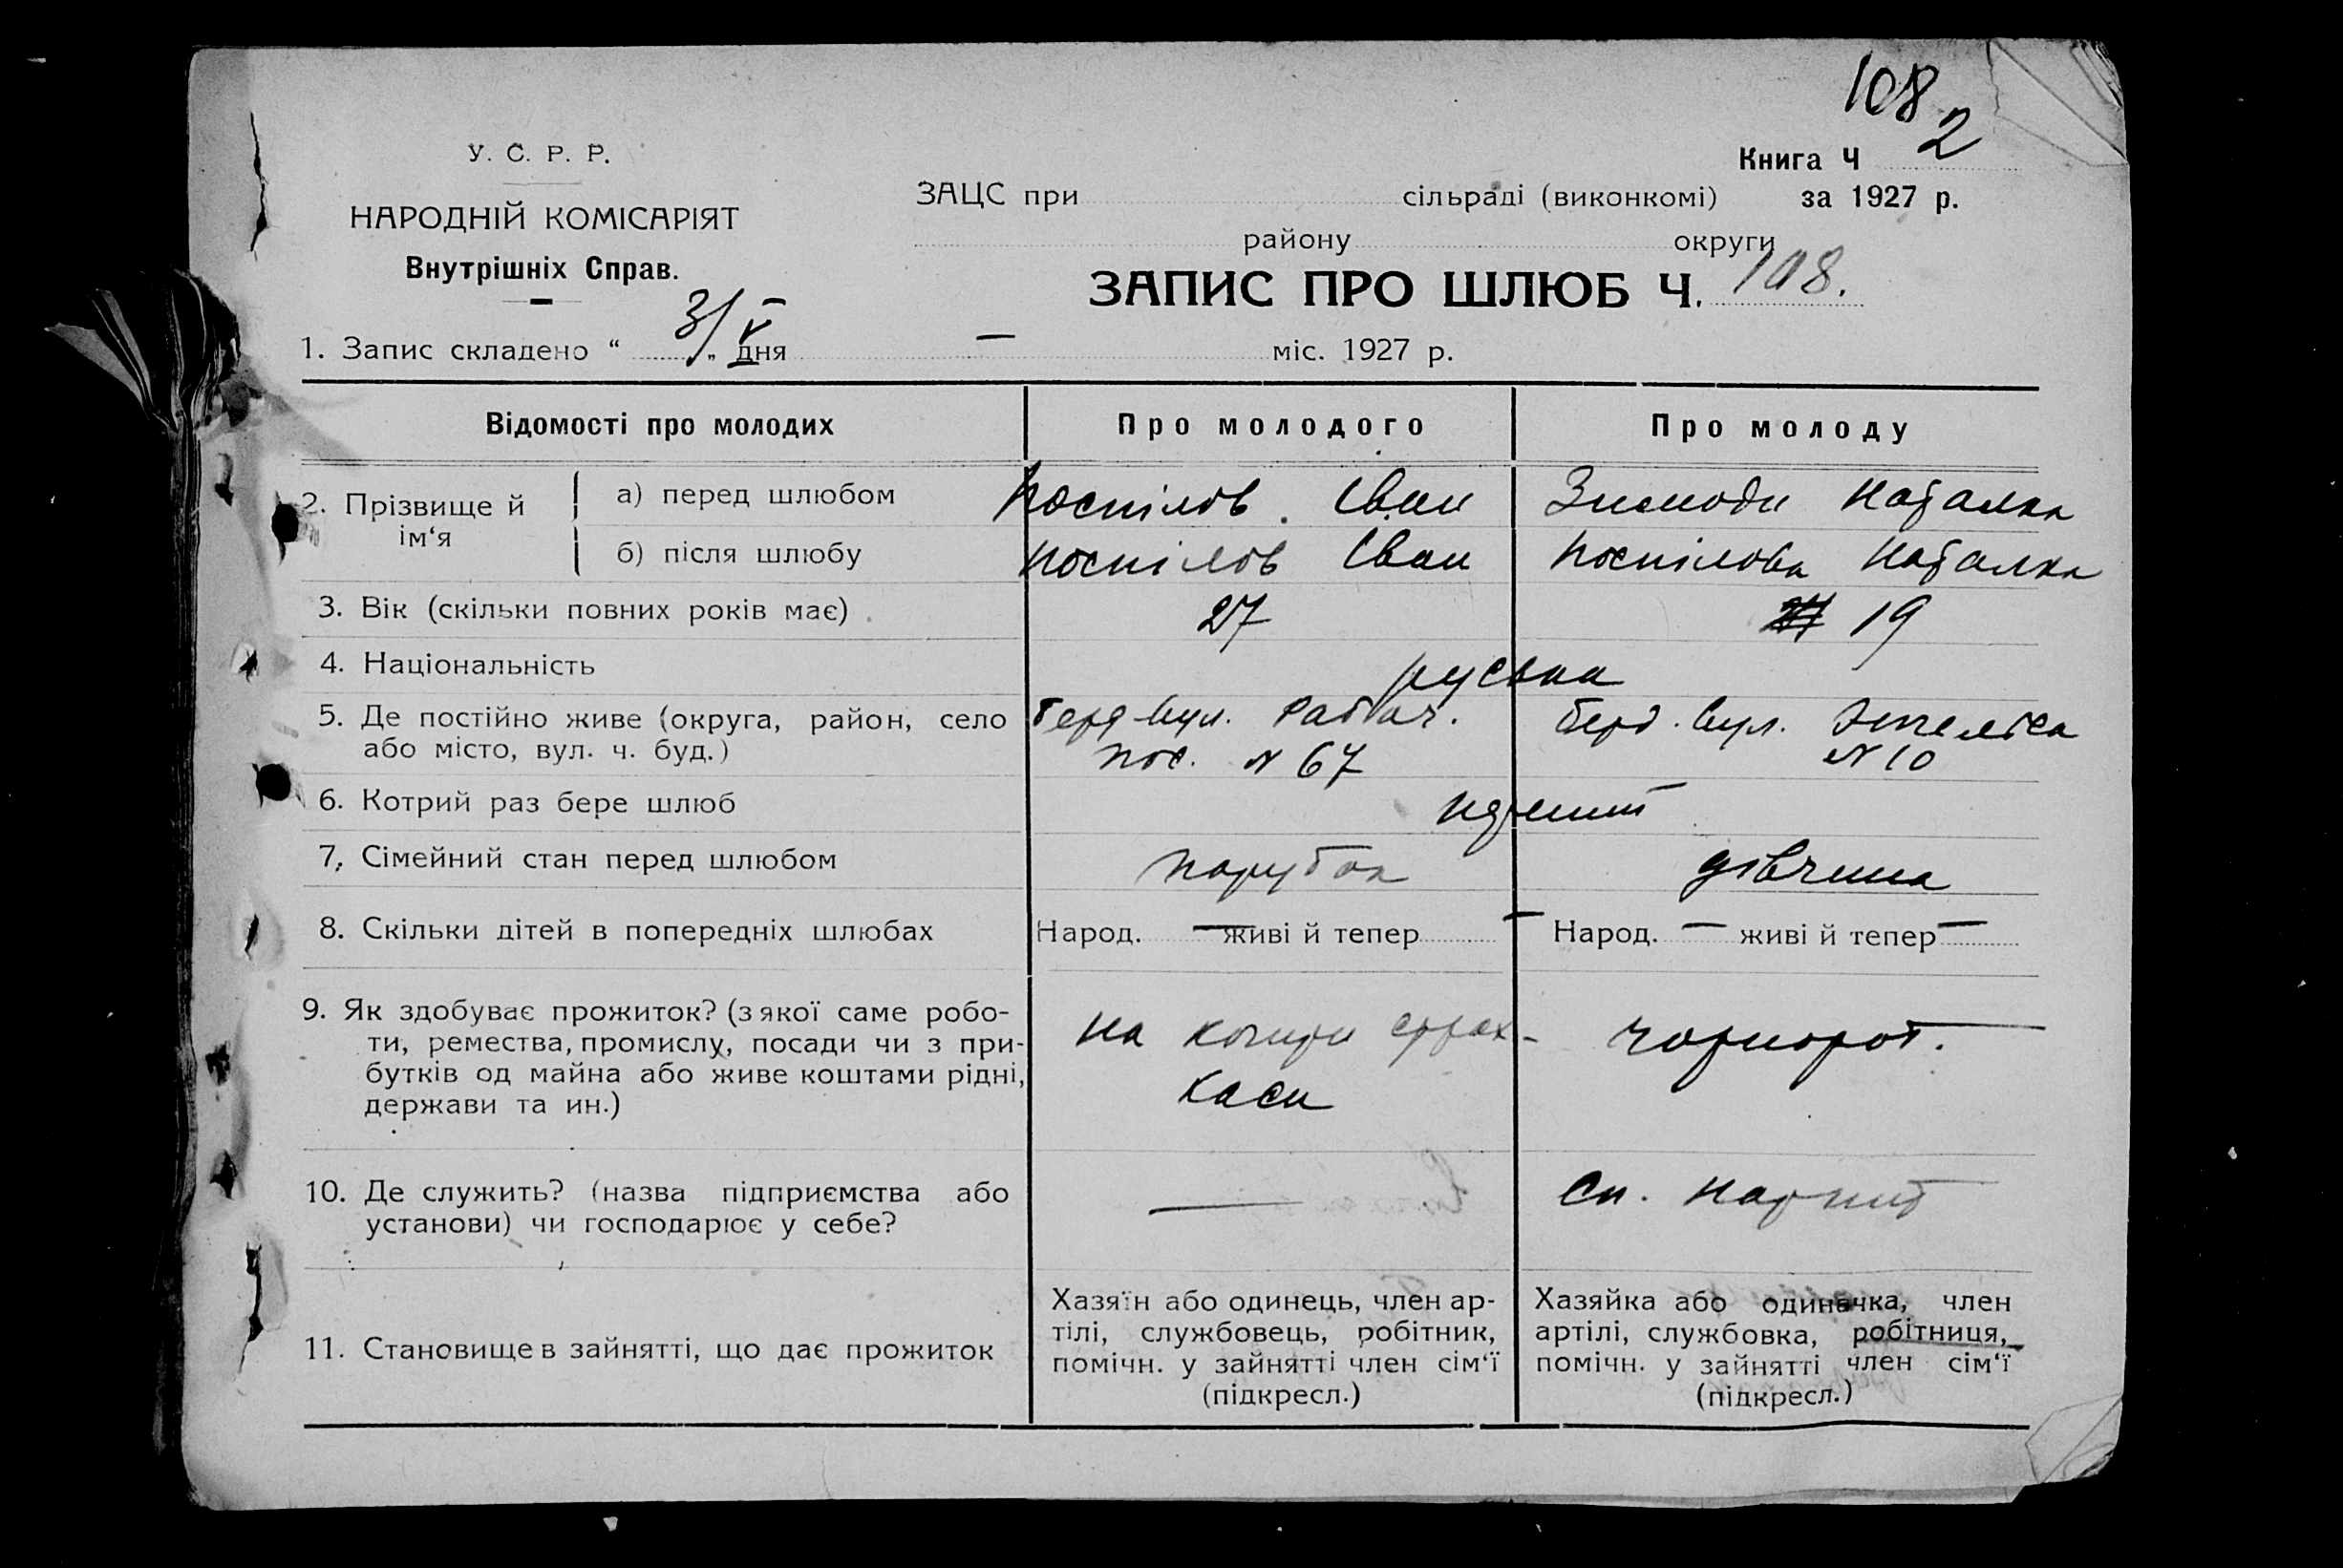 108
2
У. С. Р. Р.
НАРОДНІЙ КОМІСАРІЯТ
Внутрішніх Справ.
Книга Ч
ЗАЦС при сільраді (виконкомі) за 1927 р.
району округи
ЗАПИС ПРО ШЛЮБ Ч. 108.
1. Запис складено “ 3/V „ дня — міс. 1927 р.
Відомості про молодих Про молодого Про молоду
2. Прізвище й ім‘я
а) перед шлюбом Поспілов Іван Наталка
б) після шлюбу Поспілов Іван Поспілова Наталка
3. Вік (скільки повних років має) 27 19
4. Національність руська
5. Де постійно живе (округа, район, село
або місто, вул. ч. буд.)
Берд вул. Рабоч.
пос. N 67
Берд. вул. Энгельса
N 10
6. Котрий раз бере шлюб
7. Сімейний стан перед шлюбом парубок дівчина
8. Скільки дітей в попередніх шлюбах Народ. — живі й тепер — Народ. — живі й тепер —
9. Як здобуває прожиток? (з якої саме робо-
ти, ремества, промислу, посади чи з при-
бутків од майна або живе коштами рідні,
держави та ин.)
на кошти страх-
каси
чорнороб.
10. Де служить? (назва підприємства або
установи) чи господарює у себе?
—
Сп. Нарпит
11. Становище в зайнятті, що дає прожиток
Хазяїн або одинець, член ар-
тілі, службовець, робітник,
помічн. у зайнятті член сім‘ї
(підкресл.)
Хазяйка або одиначка, член
артілі, службовка, робітниця,
помічн. у зайнятті член сім‘ї
(підкресл.)